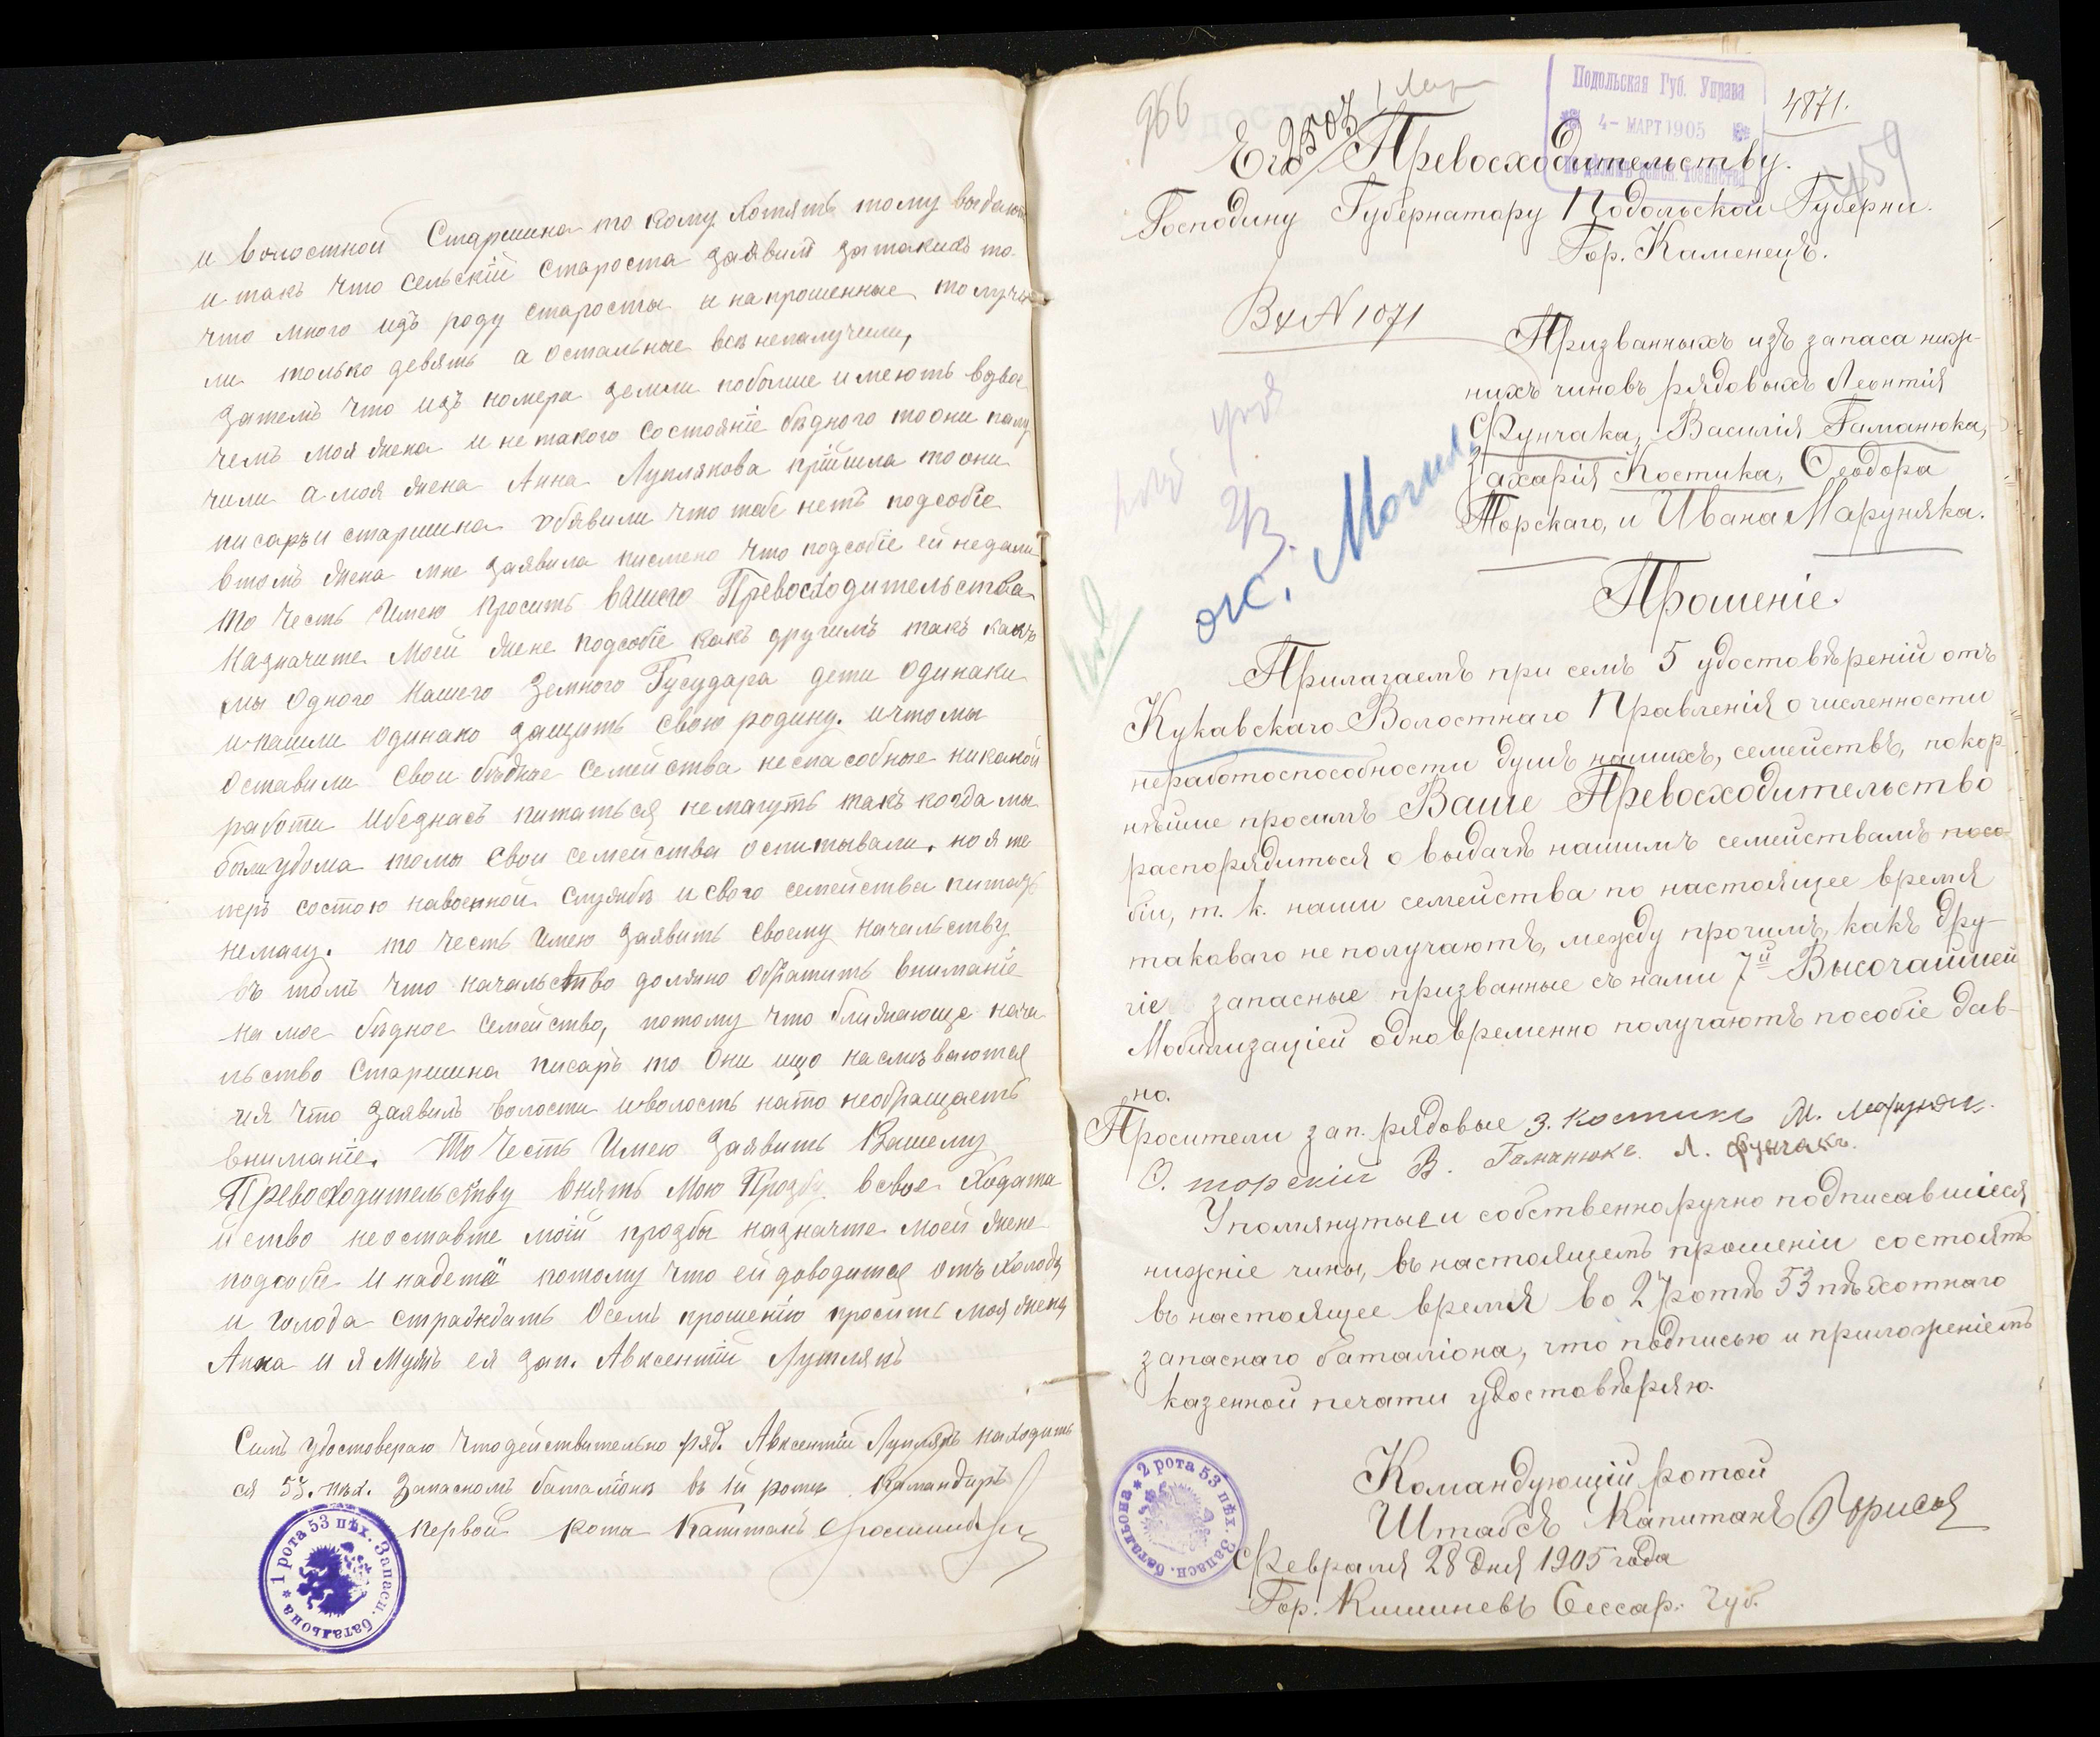 и волостной Старшина то кому хотятъ тому выдаютъ
и такъ что сельскій староста заявилъ затакихъ то
что много изъ роду старосты и на прошенные получи
ли только девять а остальные всѣ неполучили,
затемъ что изъ номера земли побольше имеютъ вдвое
чемъ моя жена и не такого состояніе бѣдного то они палу
чили а моя жена Анна Луплякова прійшла то они
писарь и старшина обявили что тебе нетъ подсобіе
втомъ жена мне заявила писмено что подсобіе ей недали
то честь Имею просить вашего Превосходительства
назначите моей жене подсобіе какъ другимъ такъ какъ
мы одного нашего Земного Гусударя дети одинаки
и пашли одинако защить свою родину. ичто мы
оставили свои бѣдные семейства неспасобные никакой
работи ибезнасъ питаться немагутъ такъ когда мы
были удома то мы свои семейства оспитывали. но я те
перъ состою навоенной службѣ и свого семейства питать
немагу. то честь имею заявить своему начальству
въ томъ что начальство должно обратить вниманіе
на мое бѣдное семейство, потому что ближающе нача
льство Старшина писарь то они ищо насмѣваются
ия что заявилъ волости иволость нато необращаетъ
вниманіе. То Честь Имею заявить Вашему
Превосходительству внять мою Прозбу всвое Ходата
йство неоставте моій прозбы назначте моей жене
подсобіе и надетй потому что ей доводится отъ холода
и голода страждать Осемъ прошенію проситъ моя жена
Анна и я мужъ ея зап. Авксентій Луплякъ
Симъ удостовераю что действительно ряд. Авксентій Луплякъ находить
ся 53. пѣх. Запасномъ баталіонѣ въ 1й роте Камандиръ
первой роты Капитанъ
* 1 рота 53 пѣх. Запасн. баталъона
966
2503
1 Мар
Подольская Губ. Управа
4 - МАРТ 1905
4871.
459
Его Превосходительству.
Господину Губернатору Подольской Губерни.
Гор. Каменецъ.
Вх N 1071
Призванныхъ изъ запаса ниж-
нихъ чиновъ рядовыхъ Леонтія
Фунчака, Василія Гаманюка,
Захарія Костика, Ѳеодора
Торскаго, и Ивана Маруняка.
ок. Могил
Прошеніе.
Прилагаемъ при семъ 5 удостовѣреній отъ
Кукавскаго Волостнаго Правленія о численности
неработоспособности душъ нашихъ, семействъ, покор-
нѣйше просимъ Ваше Превосходительство
распорядиться о выдачѣ нашимъ семействамъ посо-
біи, т. к. наши семейства по настоящее время
таковаго не получаютъ, между прочимъ, какъ дру-
гіе запасные призванные съ нами 7й Высочайшей
Мобилизаціей одновременно получаютъ пособіе дав-
но.
Просители зап. рядовые З. Костикъ И. Марунякъ.
Ѳ. торскій В. Гаманюкъ. Л. Фунчакъ.
Упомянутые и собственноручно подписавшіеся
нижніе чины, въ настоящемъ прошеніи состоятъ
въ настоящее время во 2 ротѣ 53 пѣхотнаго
запаснаго баталіона, что подписью и приложеніемъ
казенной печати удостовѣряю.
Командующій ротой
Штабсъ Капитанъ Борисъ
* 2 рота 53 пѣх. Запасн. баталъона
Февраля 28 дня 1905 года
Гор. Кишиневъ Бессар. Губ.